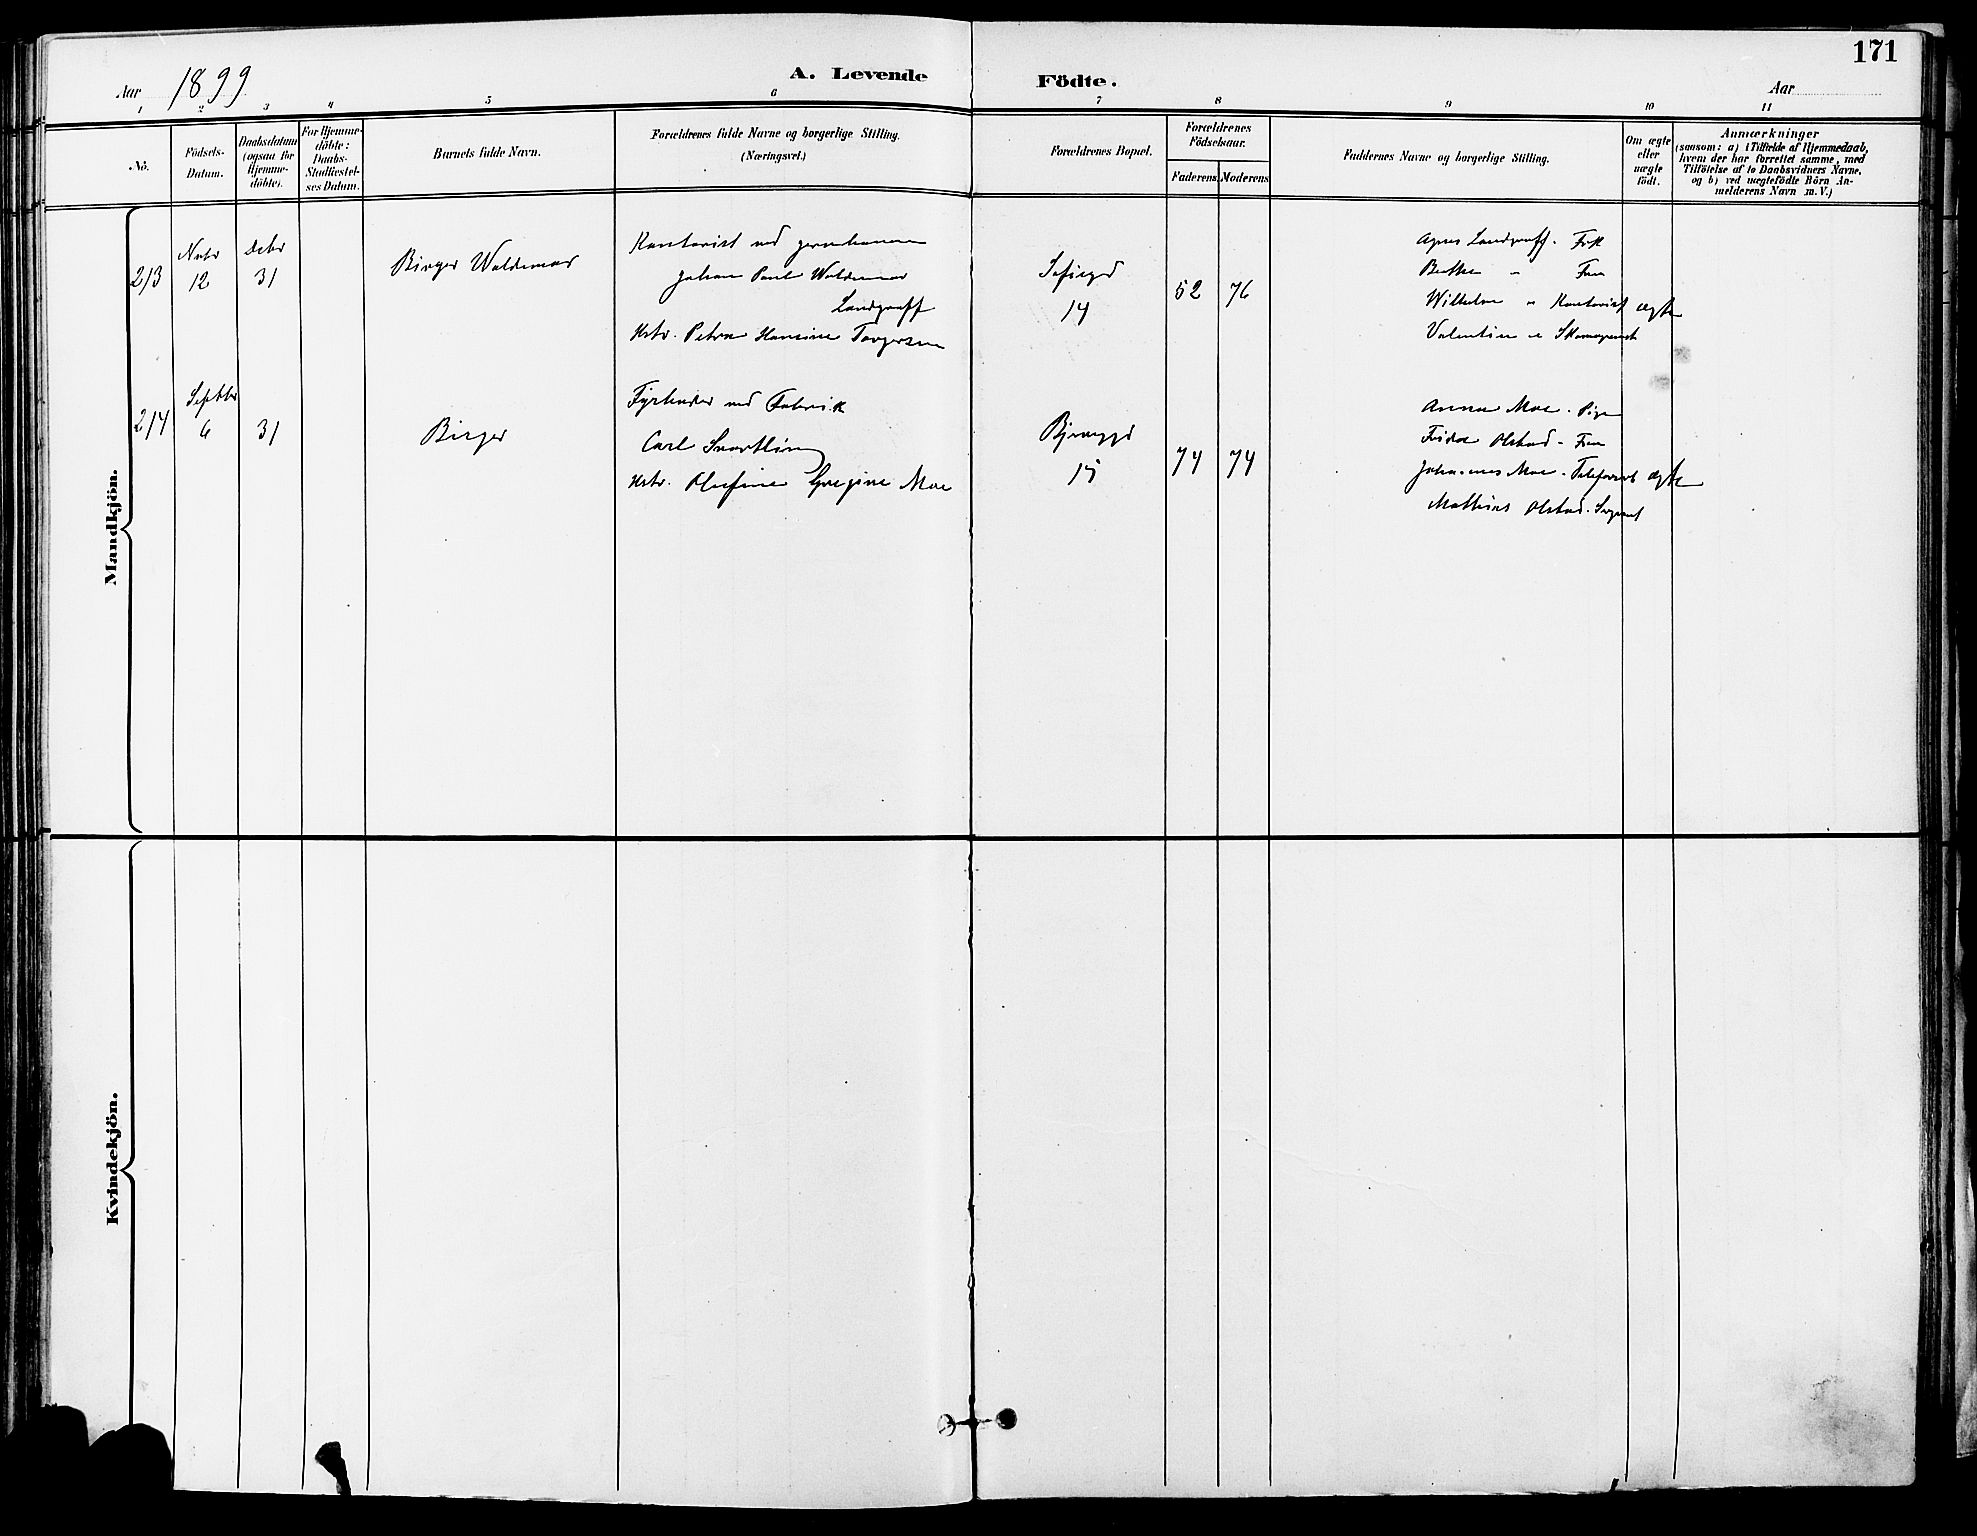 171
Aar 1899 A. Levende Födte. Aar
1 2 3 4 5 6 7 8 9 10 11
Nô.
Födsels-
Datum.
Daabsdatum
(ogsaa for
Hjemme-
döbte).
For Hjemme-
döbte:
Daabs-
Stadfæstel-
ses Datum.
Barnets fulde Navn.
Forældrenes fulde Navne og borgerlige Stilling.
(Næringsvei.)
Forældrenes Bopæl.
Forældrenes
Födselsaar.
Faderens Moderens
Faddernes Navne og borgerlige Stilling.
Om ægte
eller
uægte
födt.
Anmærkninger
(saasom: a) i Tilfælde af Hjemmedaab,
hvem der har forrettet samme, med
Tilföielse af to Daabsvidners Navne,
og b) ved uægtefödte Börn An-
melderens Navn m. V.)
Mandkjön.
213
Novbr
12
Debr
31
Birger Waldemar
Kontorist ved jernbanen
Johan Paul Waldemar
Landgraff
Hstr. Petra Hansine Torgersen
Sofiegd
14
52 76
Agnes Landgraff. Frk
Berthe " Frue
Wilhelm " Kontorist
Valentin " Skomagermst
ægte
214
Septbr
6
31
Birger
Fyrbøder ved Fabrik
Carl Svartling
Hstr. Olufine Gregine Moe
Bjerregd
15
74 74
Anna Moe. Pige
Frida Olstad - Frue
Johannes Moe - Telefonarb
Mathias Olstad. Sergeant
ægte
Kvindekjön.